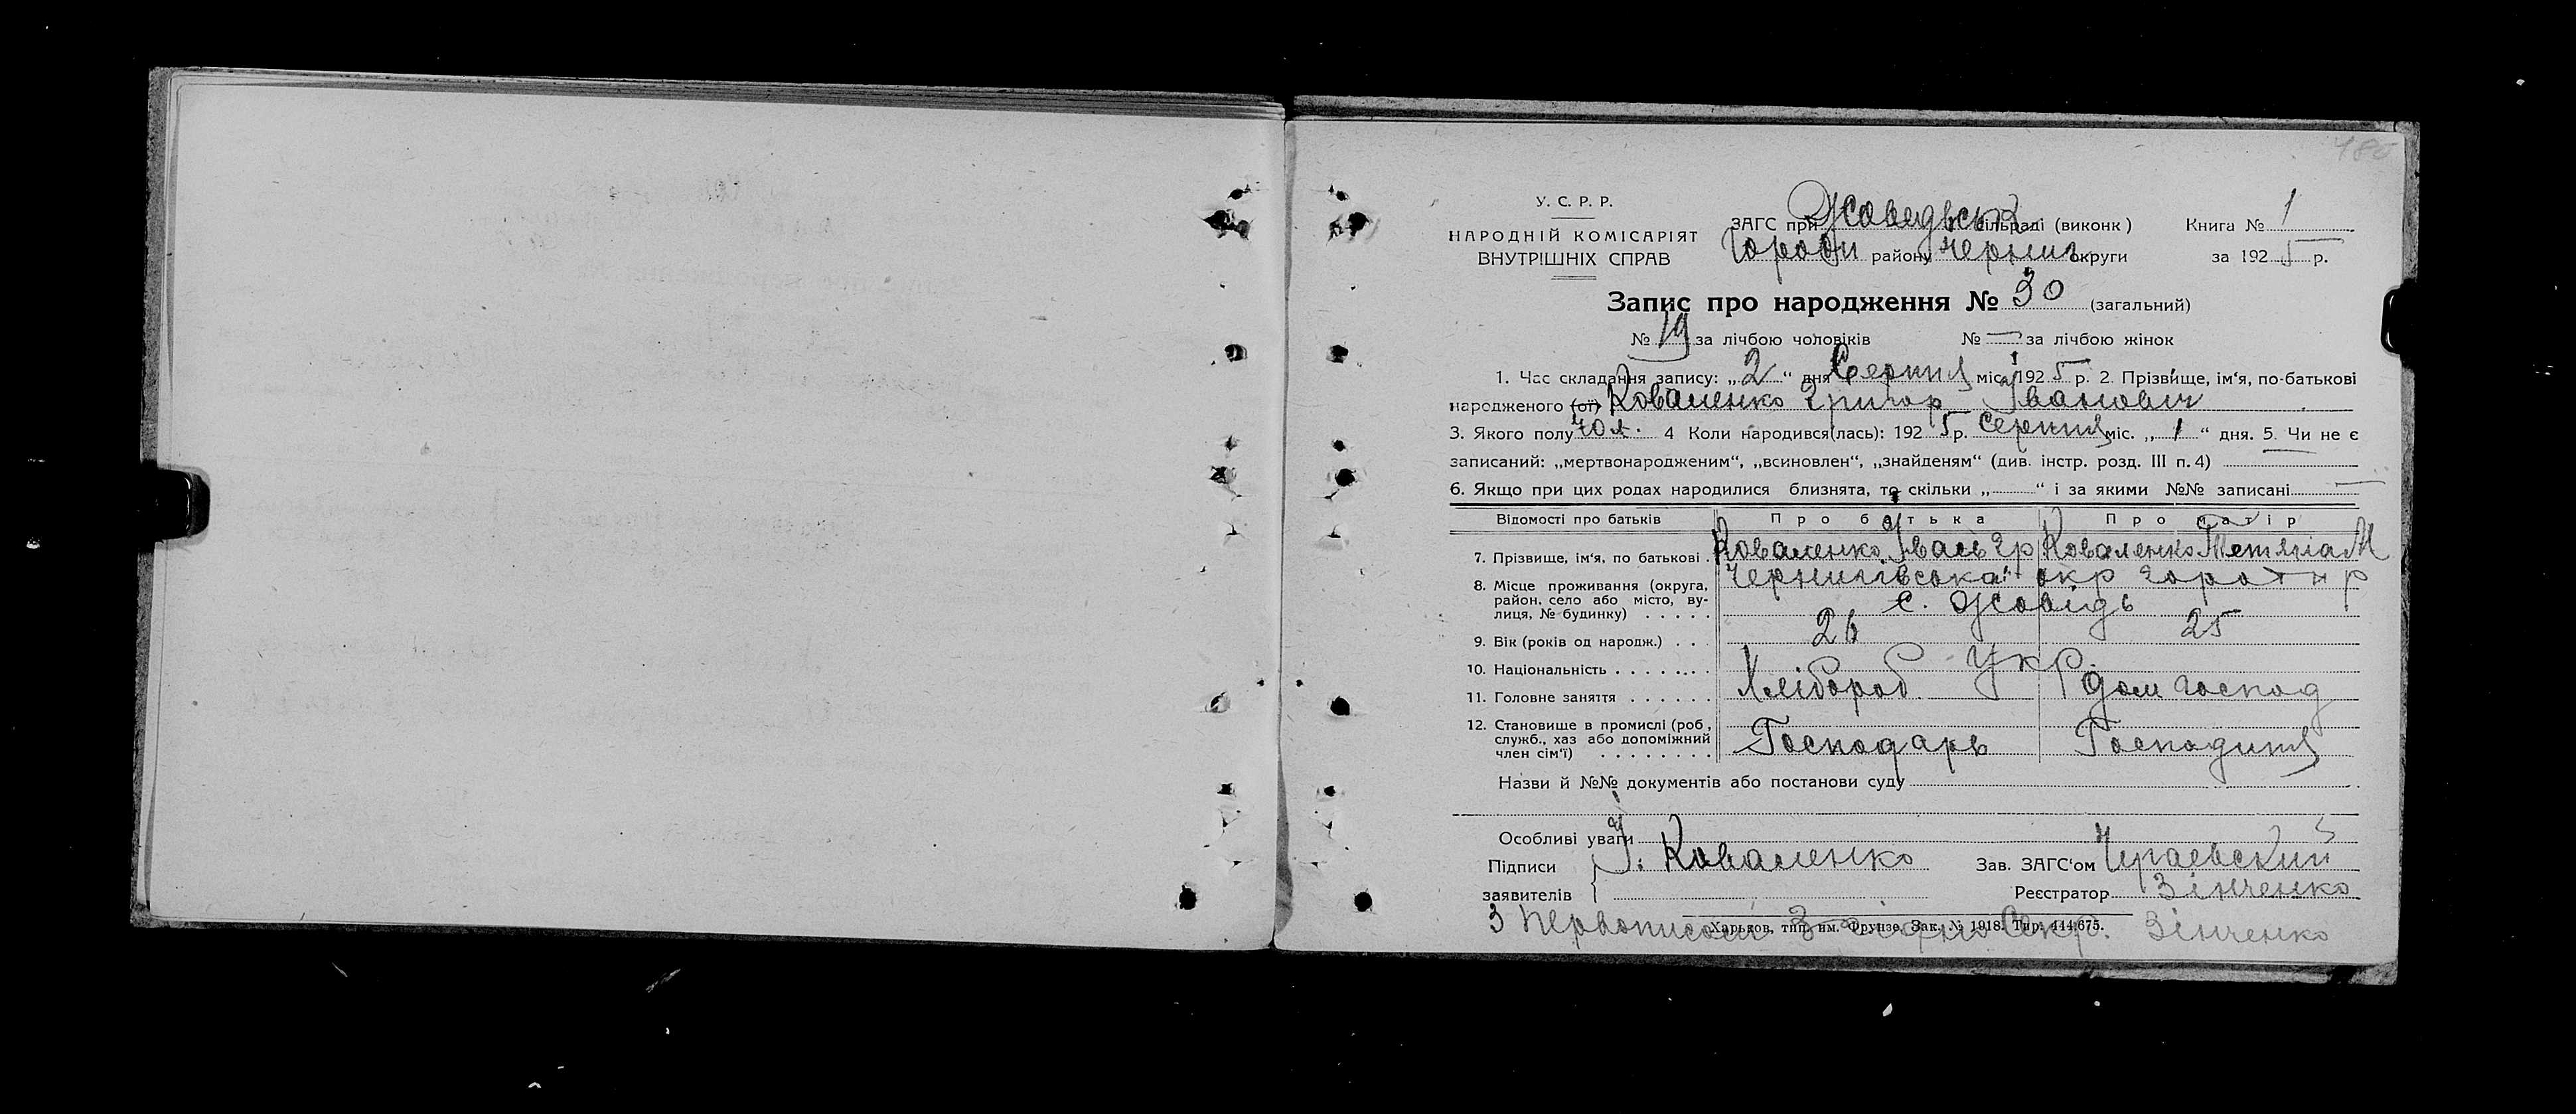 У. С. Р. Р.
НАРОДНІЙ КОМІСАРІЯТ
ВНУТРІШНІХ СПРАВ
ЗАГС при Жоведськ сільраді (виконк)
Городн району Черниг округи
Книга № 1
за 1925 р.
Запис про народження № 30 (загальний)
№ 19 за лічбою чоловіків № — за лічбою жінок
1. Час складання запису: „2“ дня Серпня міс. 1925 р. 2. Прізвище, ім‘я, по-батькові
народженого (ої) Коваленко Григор Іванович
3. Якого полу чол. 4 Коли народився(лась): 1925 р. Серпня міс. „1“ дня. 5. Чи не є
записаний: „мертвонародженим“, „всиновлен“, „знайденям“ (див. інстр. розд. III п. 4)
6. Якщо при цих родах народилися близнята, то скільки „ “ і за якими №№ записані —
Відомості про батьків Про батька Про матір
7. Прізвище, ім‘я, по батькові . Коваленко Івась Гр Коваленко Тетяна М
8. Місце проживання (округа, Чернигівська окр Городн р
район, село або місто, ву-
лиця, № будинку) . . . . . с. Жовідь
9. Вік (років од народж.) . . . 26 25
10. Національність . . . . . . . . Укр.
11. Головне заняття . . . . . . Хлібороб Дом господ
12. Становище в промислі (роб,
служб., хаз або допоміжний
член сім‘ї) . . . . . . . . Господарь Господиня
Назви й №№ документів або постанови суду
Особливі уваги
Підписи І. Коваленко Зав. ЗАГС‘ом
заявителів Реєстратор Зінченко
Харьков, тип. им. Фрунзе. Зак. № 1918. Тир. 444.675.
З первописом Згідно Секр. Зінченко